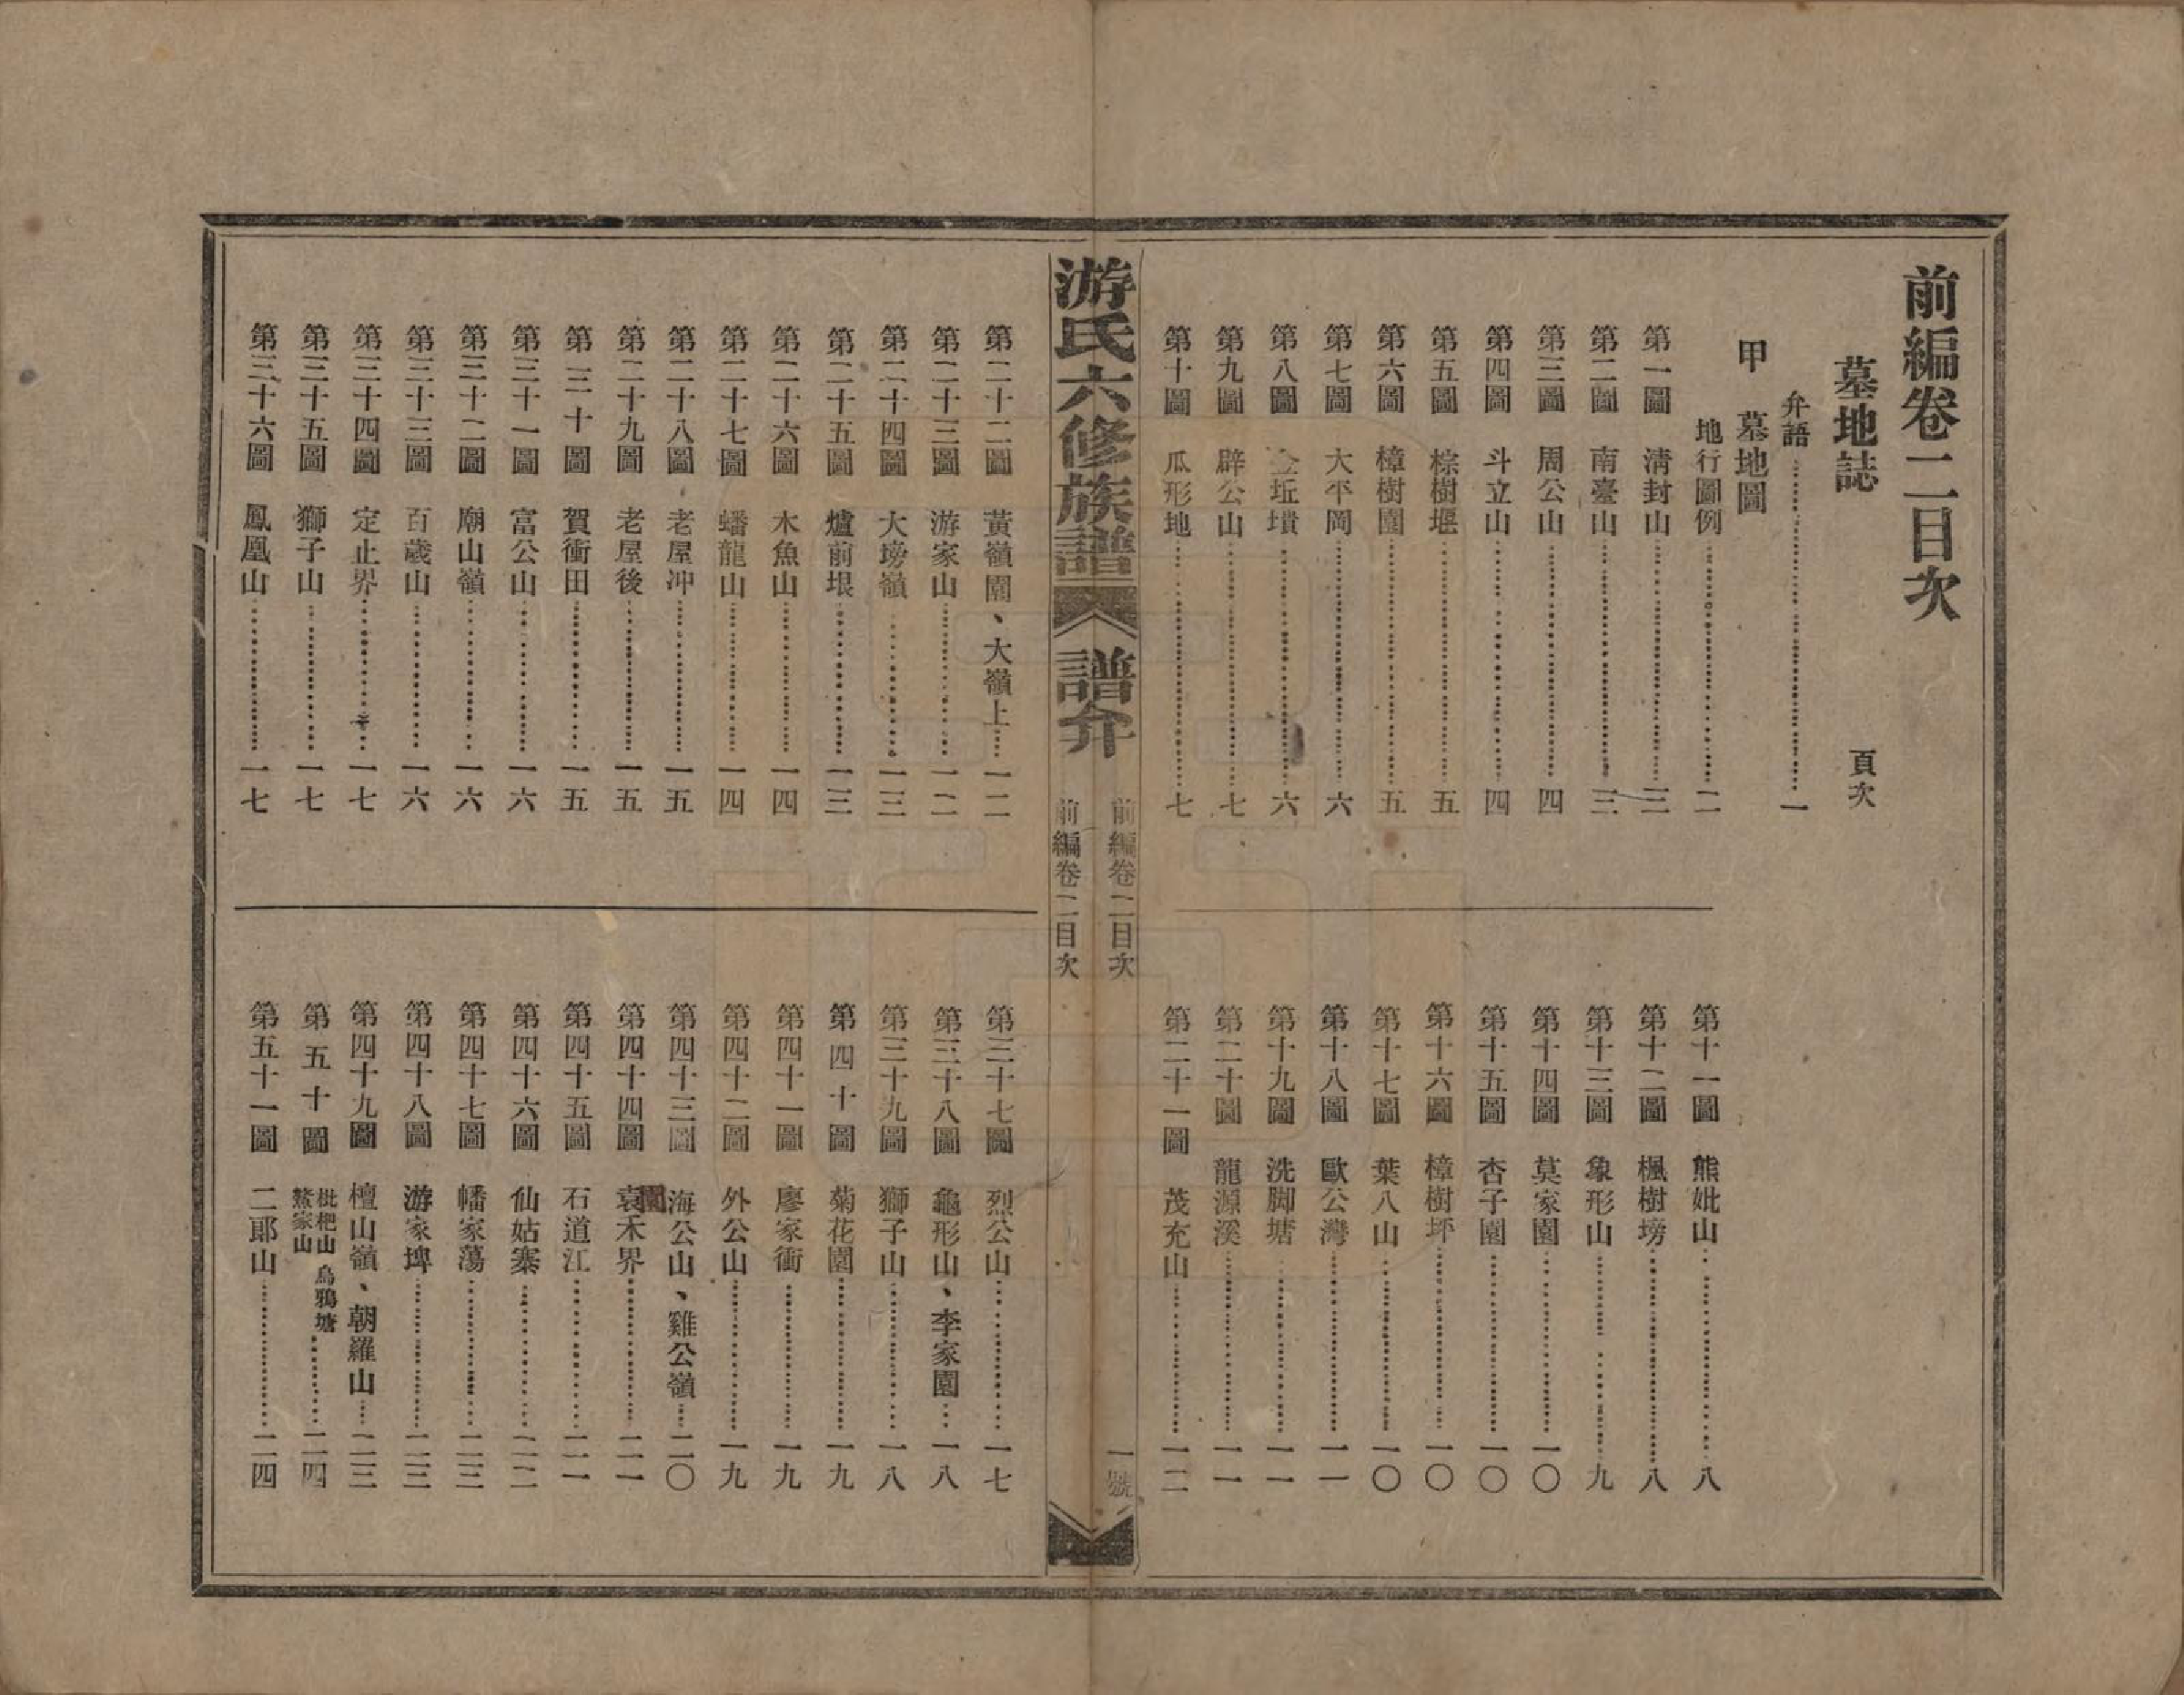 前編卷二目次
墓地誌　頁次
弁語……一
甲　墓地圖
地行圖例……二
第一圖　清封山……三
第二圖　南臺山……三
第三圖　周公山……四
第四圖　斗立山……四
第五圖　棕樹堰……五
第六圖　樟樹園……五
第七圖　大平岡……六
第八圖　坵墳……六
第九圖　辟公山……七
第十圖　瓜形地……七
第十一圖　熊妣山……八
第十二圖　楓樹塝……八
第十三圖　象形山……九
第十四圖　莫家園……一〇
第十五圖　杏子園……一〇
第十六圖　樟樹坪……一〇
第十七圖　葉八山……一〇
第十八圖　歐公灣……一一
第十九圖　洗脚塘……一一
第二十圖　龍源溪……一一
第二十一圖　茂充山……一二
游氏六修族譜　譜弁
前編卷二目次　一號
前編卷二目次
第二十二圖　黃嶺園、大嶺上……一二
第二十三圖　游家山……一二
第二十四圖　大塝嶺……一三
第二十五圖　爐前垠……一三
第二十六圖　木魚山……一四
第二十七圖　蟠龍山……一四
第二十八圖　老屋冲……一五
第二十九圖　老屋後……一五
第三十圖　賀衝田……一五
第三十一圖　富公山……一六
第三十二圖　廟山嶺……一六
第三十三圖　百歲山……一六
第三十四圖　定止界……一七
第三十五圖　獅子山……一七
第三十六圖　鳳凰山……一七
第三十七圖　烈公山……一七
第三十八圖　龜形山、李家園……一八
第三十九圖　獅子山……一八
第四十圖　菊花園……一九
第四十一圖　廖家衝……一九
第四十二圖　外公山……一九
第四十三圖　海公山、雞公嶺……二〇
第四十四圖　袁禾界……二一
第四十五圖　石道江……二一
第四十六圖　仙姑寨……二二
第四十七圖　幡家蕩……二三
第四十八圖　游家埤……二三
第四十九圖　檀山嶺、朝羅山……二三
第五十圖　枇杷山　烏鴉塘　鰲家山……二四
第五十一圖　二郎山……二四